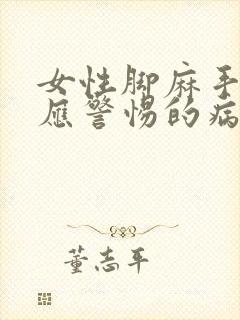 女性脚麻手
应警惕的病
董志平